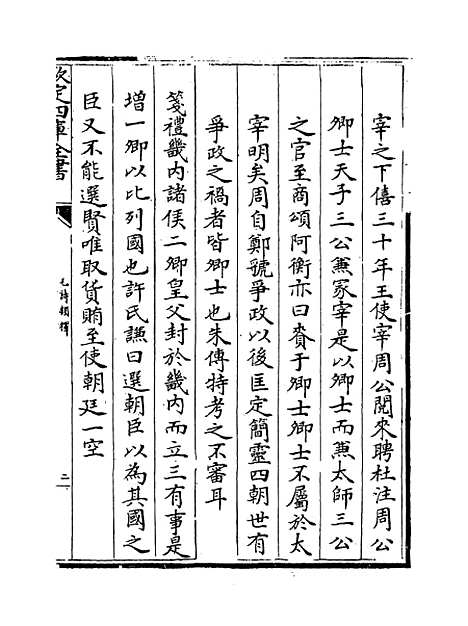 宰之下僖三十年王使宰周公閱來聘杜注周公
卿士天子三公兼冢宰是以卿士而兼太師三公
之官至商頌阿衡亦曰賚于卿士卿士不屬於太
宰明矣周自鄭號爭政以後匡定簡靈四朝世有
爭政之禍者皆卿士也朱傳特考之不審耳
箋禮畿内諸侯二卿皇父封於畿内而立三有事是
增一卿以比列國也許氏謙曰選朝臣以為其國之
臣又不能選賢唯取貨賄至使朝廷一空
欽定四庫全書
毛詩類釋
二